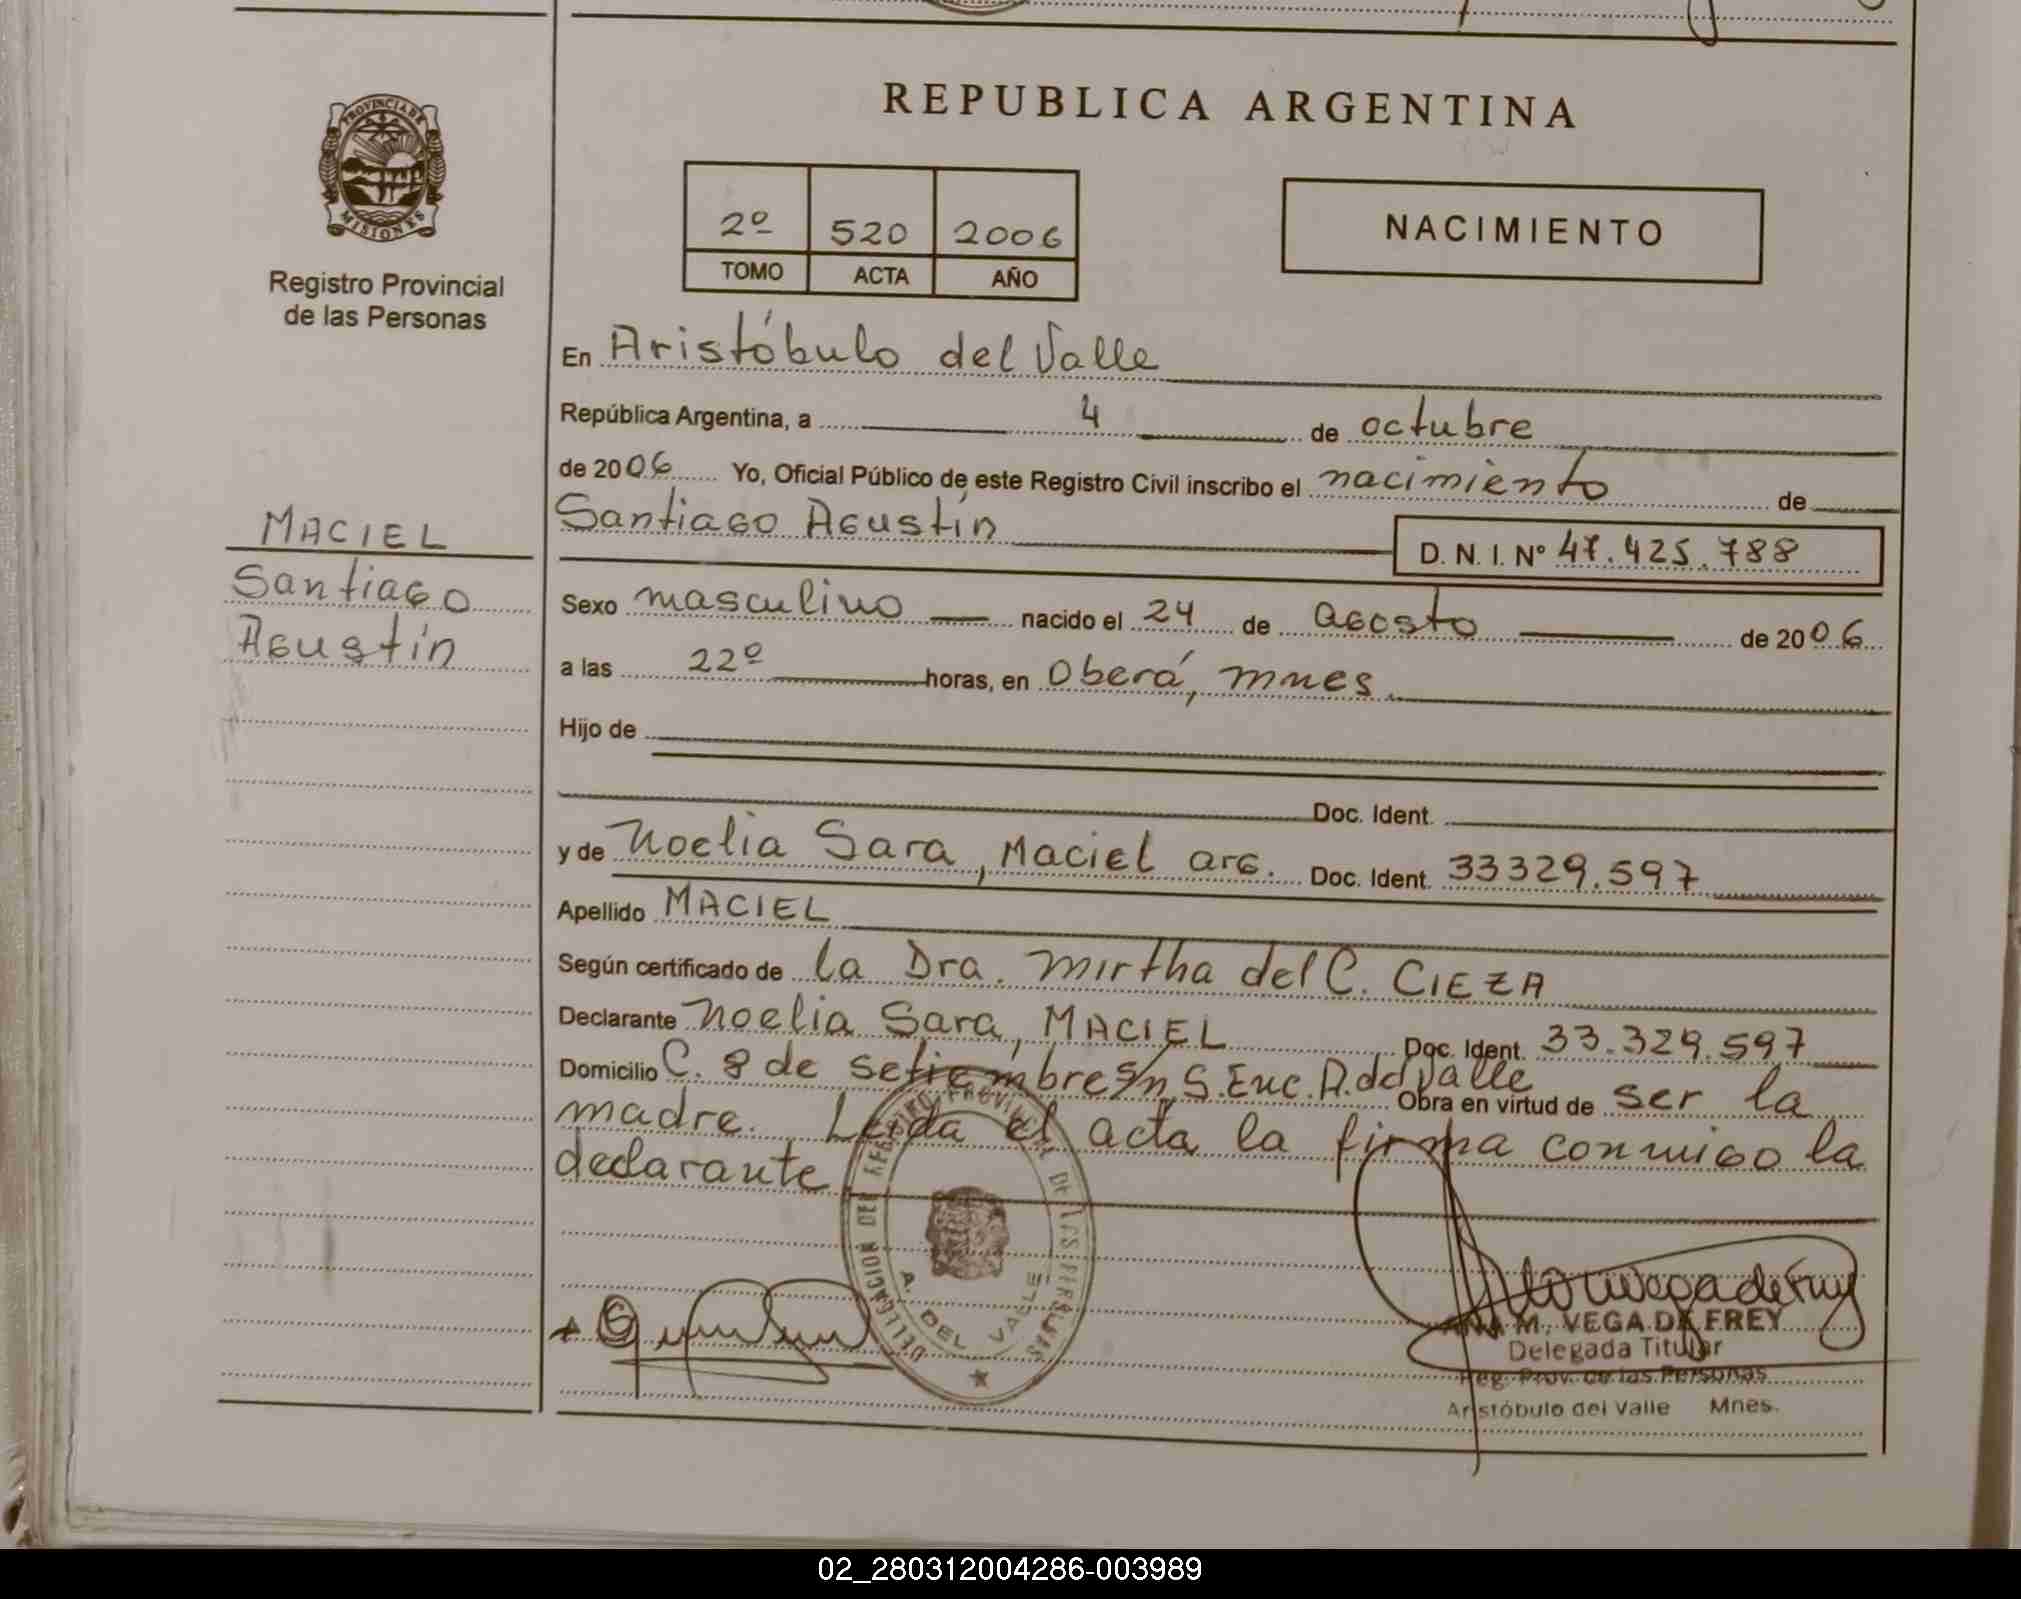 REPUBLICA ARGENTINA
PROVINCIA DE
MISIONES
Registro Provincial
de las Personas
2º 520 2006
TOMO ACTA AÑO
NACIMIENTO
En Aristóbulo del Valle
República Argentina, a 4 de octubre
de 2006 Yo, Oficial Público de este Registro Civil inscribo el nacimiento de
Santiago Agustín
D. N. I. Nº 47.425.788
MACIEL
Santiago
Agustín
Sexo masculino nacido el 24 de agosto de 2006
a las 22º horas, en Oberá, mnes.
Hijo de
Doc. Ident.
y de Noelia Sara, Maciel arg. Doc. Ident. 33329.597
Apellido MACIEL
Según certificado de la Dra. Mirtha del C. CIEZA
Declarante Noelia Sara, MACIEL Doc. Ident. 33.329.597
Domicilio C. 8 de setiembre s/n S. Enc. A. del Valle Obra en virtud de ser la
madre. Leída el acta la firma conmigo la
declarante
DELEGACION DEL REGISTRO PROVINCIAL DE LAS PERSONAS
A. DEL VALLE
ANA M. VEGA DE FREY
Delegada Titular
Reg. Prov. de las Personas
Aristóbulo del Valle Mnes.
02_280312004286-003989